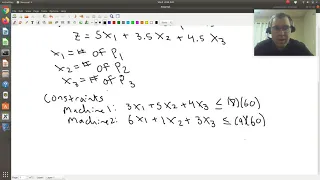 Z = 5x₁ + 3.5x₂ + 4.5x₃
x₁ = # of P₁
x₂ = # of P₂
x₃ = # of P₃
Constraints
Machine 1: 3x₁ + 5x₂ + 4x₃ ≤ (8)(60)
Machine 2: 6x₁ + 1x₂ + 3x₃ ≤ (9)(60)